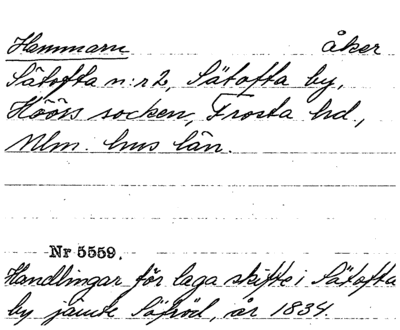 Hammarn åker
Sätofta n:r 2, Sätofta by,
Höörs socken, Frosta hd.,
Mlm. hus län.
Nr 5559.
Handlingar för laga skifte i Sätofta
by jämte Söfröd, år 1834.